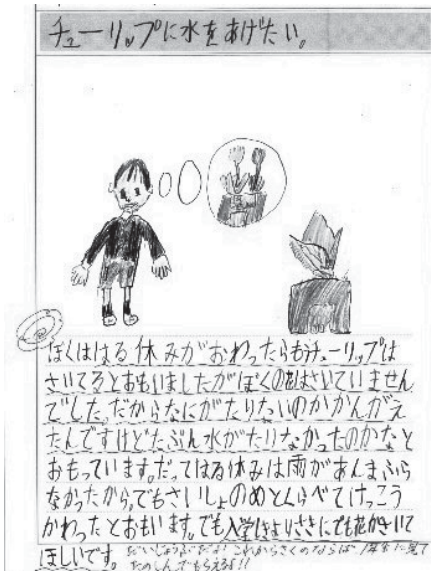 チューリップに水をあげたい。
ぼくははる休みがおわったらもチューリップは
さいてるとおもいましたがぼくの花はさいていません
でした。だからなにがたりないのかかんがえ
たんですけどたぶん水がたりなかったのかなと
おもっています。だってはる休みは雨があんまふら
なかったから。でもさいしょのめとくらべてけっこう
かわったとおもいます。でも入学しきよりさきにでも花がさいて
ほしいです。だいじょうぶだよ!これからさくのならば1年生に見て
たのしんでもらえるよ!!